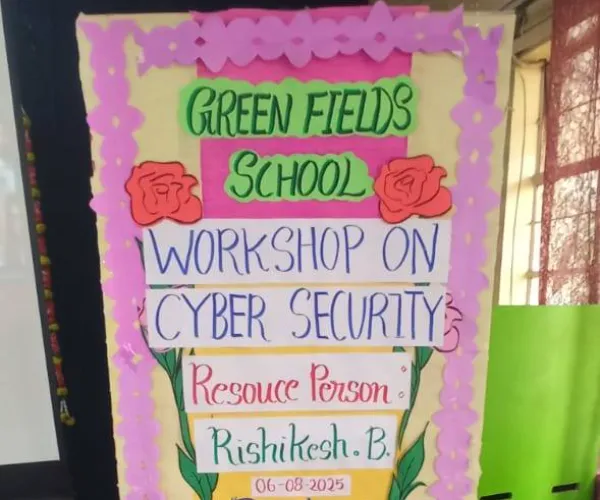 GREEN FIELDS
SCHOOL
WORKSHOP ON
CYBER SECURITY
Resouce Person :
Rishikesh. B.
06-08-2025